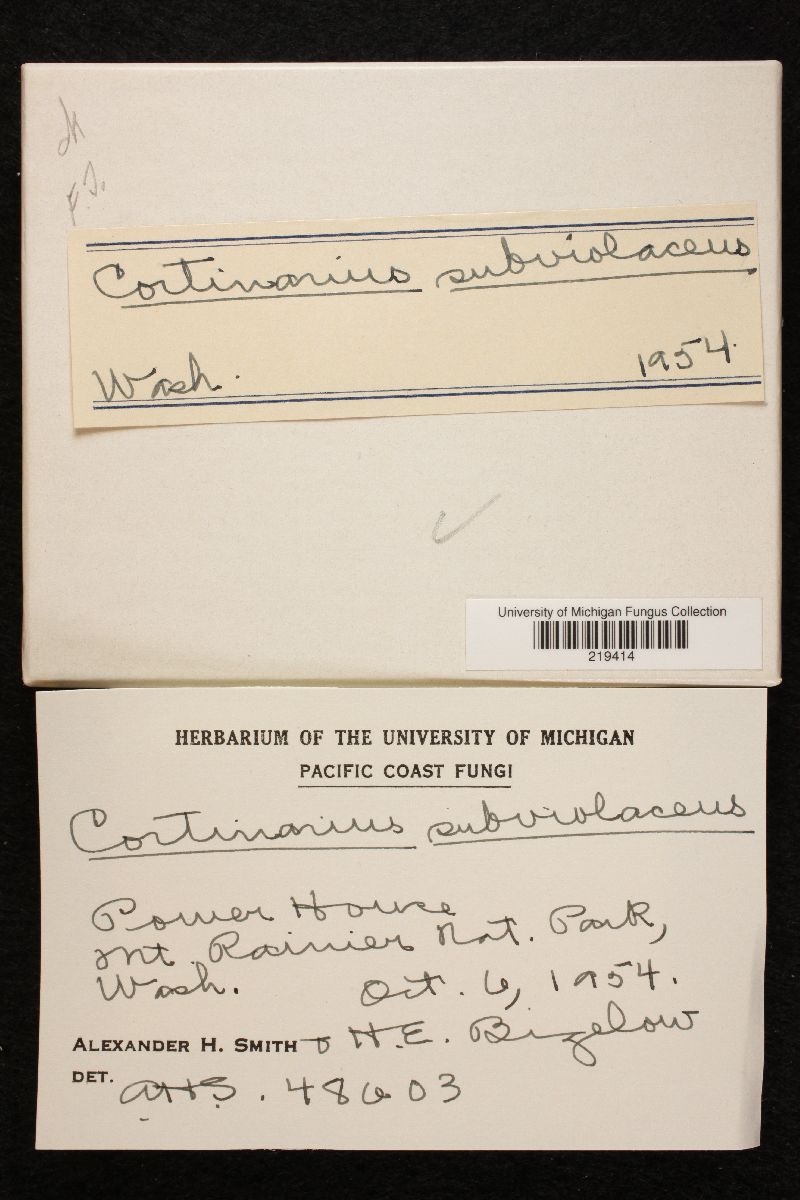 F.T.
Cortinarius subviolaceus
Wash. 1954.
University of Michigan Fungus Collection
219414
HERBARIUM OF THE UNIVERSITY OF MICHIGAN
PACIFIC COAST FUNGI
Cortinarius subviolaceus
Power House
Mt. Rainier Nat. Park,
Wash. Oct. 6, 1954.
ALEXANDER H. SMITH & H.E. Bigelow
DET. AHS. 48603